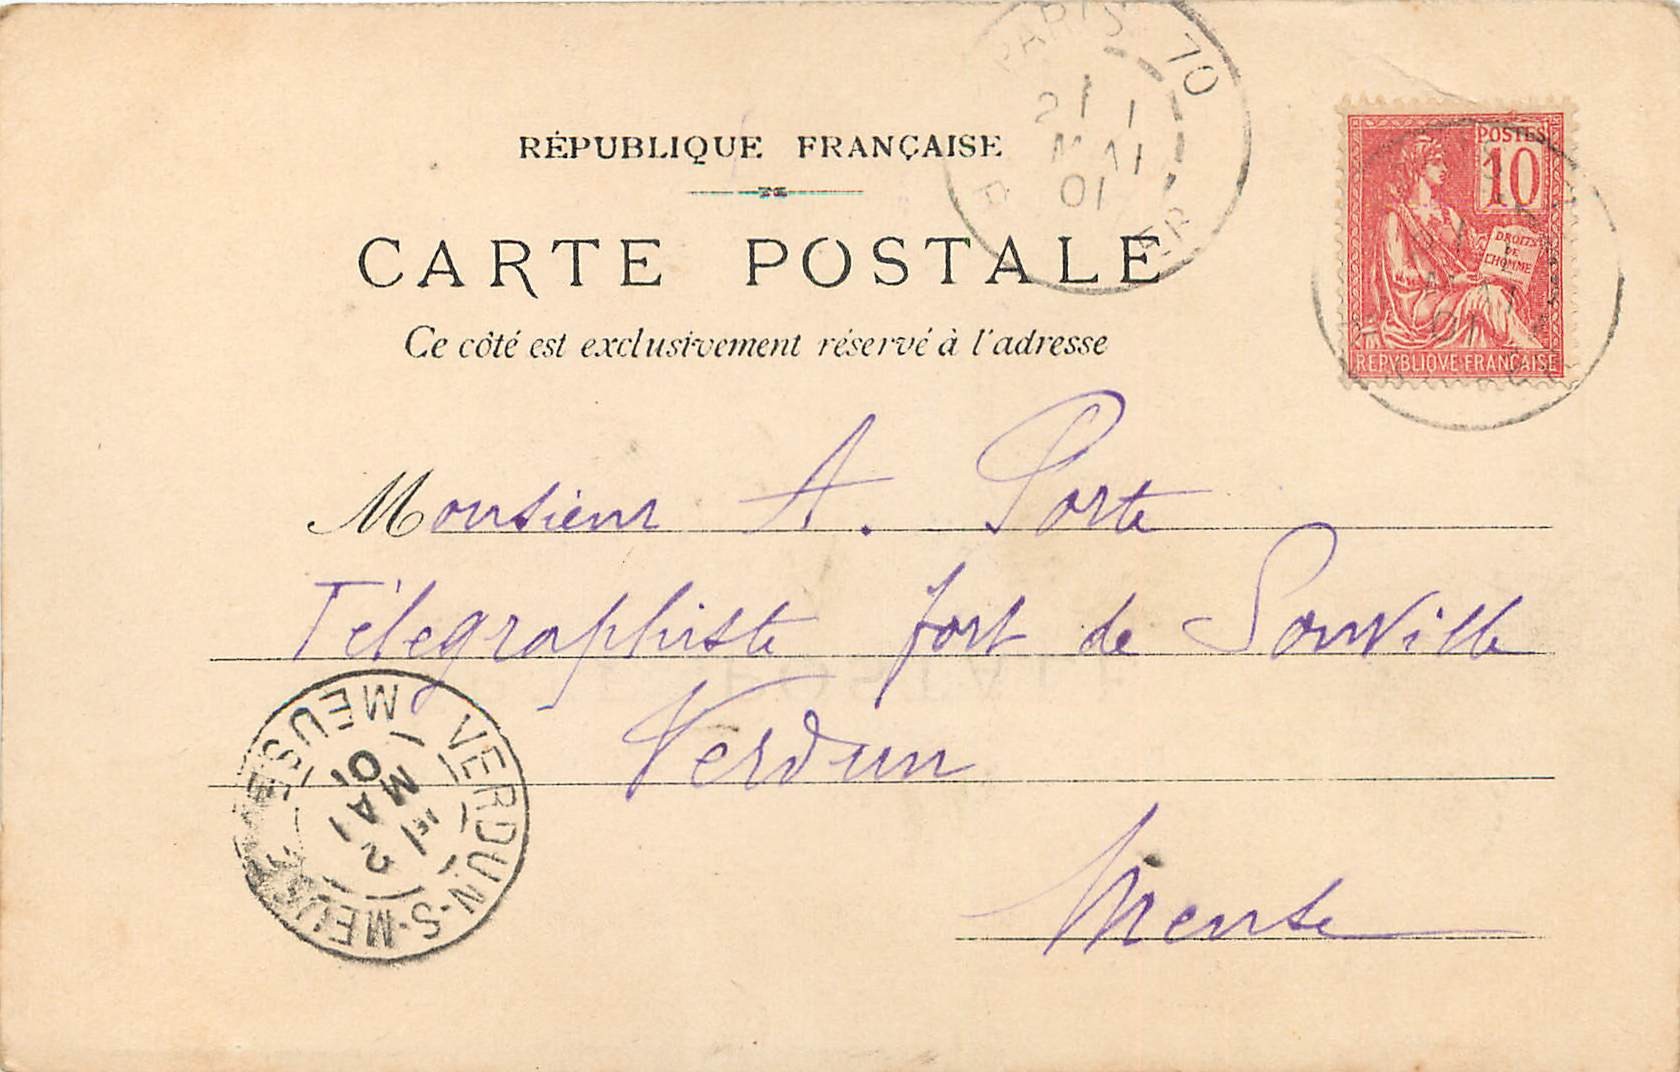 RÉPUBLIQUE FRANÇAISE
CARTE POSTALE
Ce côté est exclusivement réservé à l'adresse
PARIS 70
MAI
01
POSTES
10
DROITS
DE
L'HOMME
REPVBLIQVE FRANÇAISE
Monsieur A. Porte
Télégraphiste fort de Souville
Verdun
Meuse
VERDUN-S-MEUSE
MEUSE
2
MAI
01